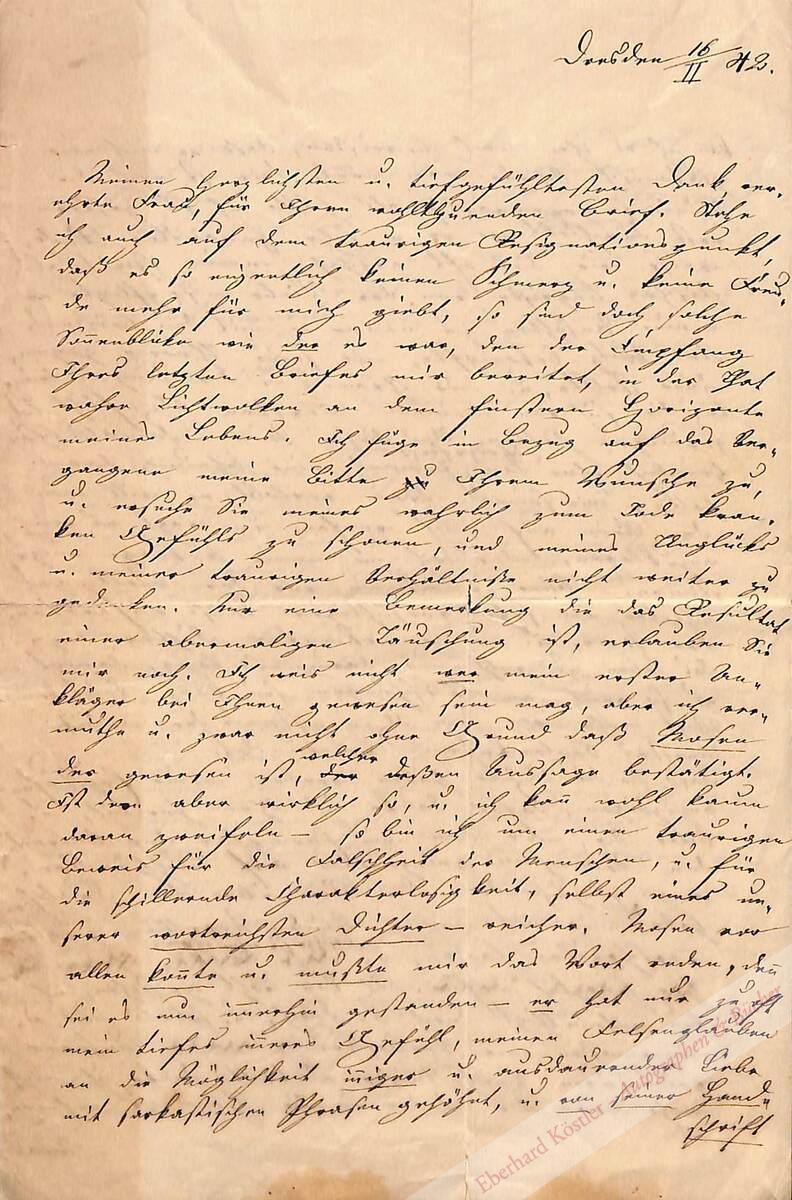 Dresden 16/II 42.
Meinen herzlichsten u. tiefgefühltesten Dank, ver-
ehrte Frau, für Ihren wohlthuenden Brief. Stehe
ich auch auf dem traurigen Resignationspunkt,
daß es so eigentlich keinen Schmerz u. keine Freu-
de mehr für mich giebt, so sind doch solche
Sonnenblicke wie der es war, den der Empfang
Ihres letzten Briefes mir bereitet, in der That
wahre Lichtwolken an dem finstern Horizonte
meines Lebens. Ich füge in Bezug auf das Ver-
gangene meine Bitte zu Ihrem Wunsche zu,
u. ersuche Sie meines wahrlich zum Tode kran-
ken Gefühls zu schonen, und meines Unglücks
u. meiner traurigen Verhältniße nicht weiter zu
gedenken. Nur eine Bemerkung die das Resultat
einer abermaligen Täuschung ist, erlauben Sie
mir noch. Ich weis nicht wer mein erster An-
kläger bei Ihnen gewesen sein mag, aber ich ver-
muthe u. zwar nicht ohne Grund daß Mosen
der gewesen ist, welcher deßen Aussage bestätigt.
Ist dem aber wirklich so, u. ich kann wohl kaum
daran zweifeln – so bin ich um einen traurigen
Beweis für die Falschheit der Menschen, u. für
die schillernde Charakterlosigkeit, selbst eines un-
serer wortreichsten Dichter – reicher. Mosen vor
allen konnte u. mußte mir das Wort reden, denn
sei es nun immerhin gestanden – er hat nur zu oft
mein tiefes inneres Gefühl, meinen Felsenglauben
an die Möglichkeit inniger u. ausdauernder Liebe
mit sarkastischen Phrasen gehöhnt, u. von seiner Hand-
schrift
Eberhard Köstler Autographen & Bücher